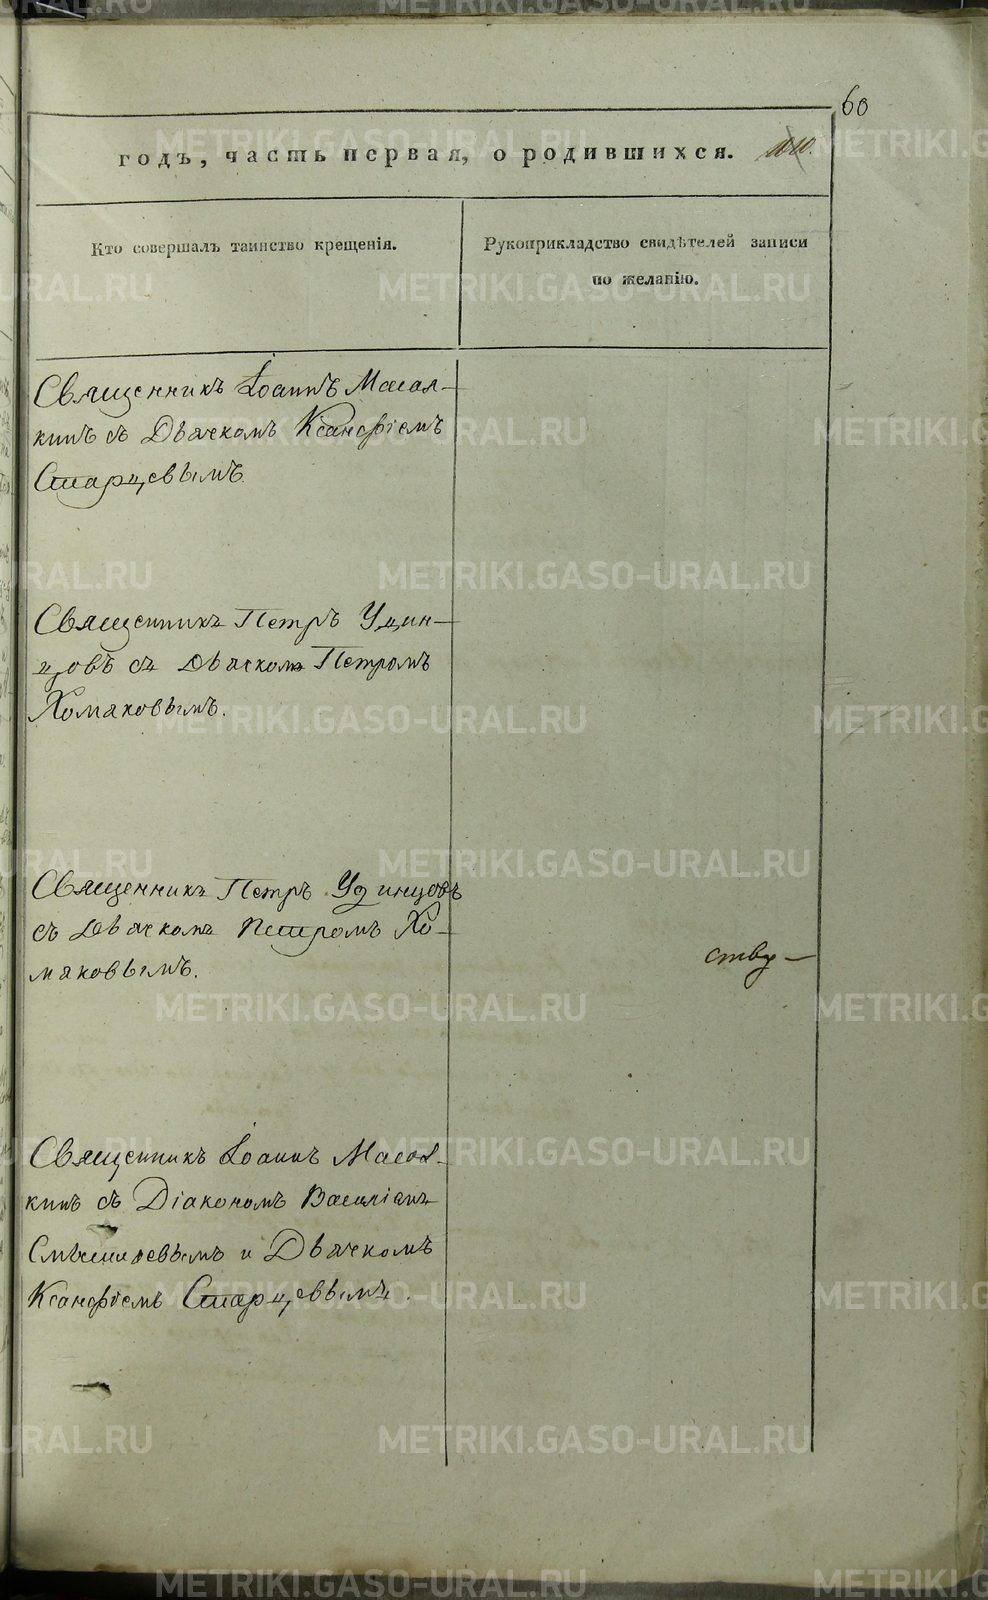 60
годъ, часть первая, о родившихся.
Кто совершалъ таинство крещенія.
Рукоприкладство свидѣтелей записи
по желанію.
Священникъ Іоаннъ Масал-
кинъ съ Дьячкомъ Ксанфіемъ
Старцевымъ.
Священникъ Петръ Удин-
цовъ съ Дьячкомъ Петромъ
Хомяковымъ.
Священникъ Петръ Удинцовъ
съ Дьячкомъ Петромъ Хо-
мяковымъ.
ству-
Священникъ Іоаннъ Масал-
кинъ съ Діакономъ Василіемъ
и Дьячкомъ
Ксанфіемъ Старцевымъ.
METRIKI.GASO-URAL.RU